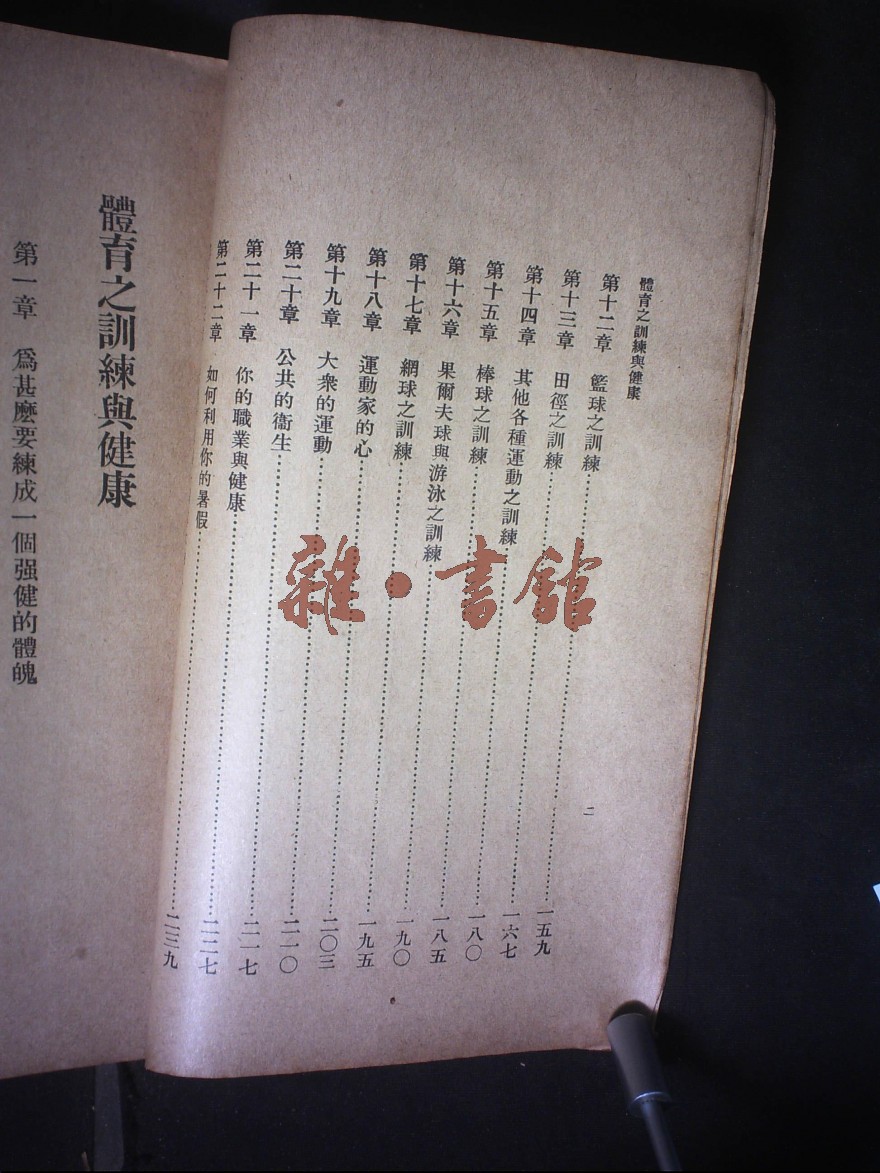 體育之訓練與健康
第十二章 籃球之訓練……一五九
第十三章 田徑之訓練……一六七
第十四章 其他各種運動之訓練……一八〇
第十五章 棒球之訓練……一八五
第十六章 果爾夫球與游泳之訓練……一九〇
第十七章 網球之訓練……一九五
第十八章 運動家的心……二〇三
第十九章 大衆的運動……二一〇
第二十章 公共的衞生……二一七
第二十一章 你的職業與健康……二二七
第二十二章 如何利用你的暑假……二三九
二
體育之訓練與健康
第一章 爲甚麽要練成一個强健的體魄
雜·書館